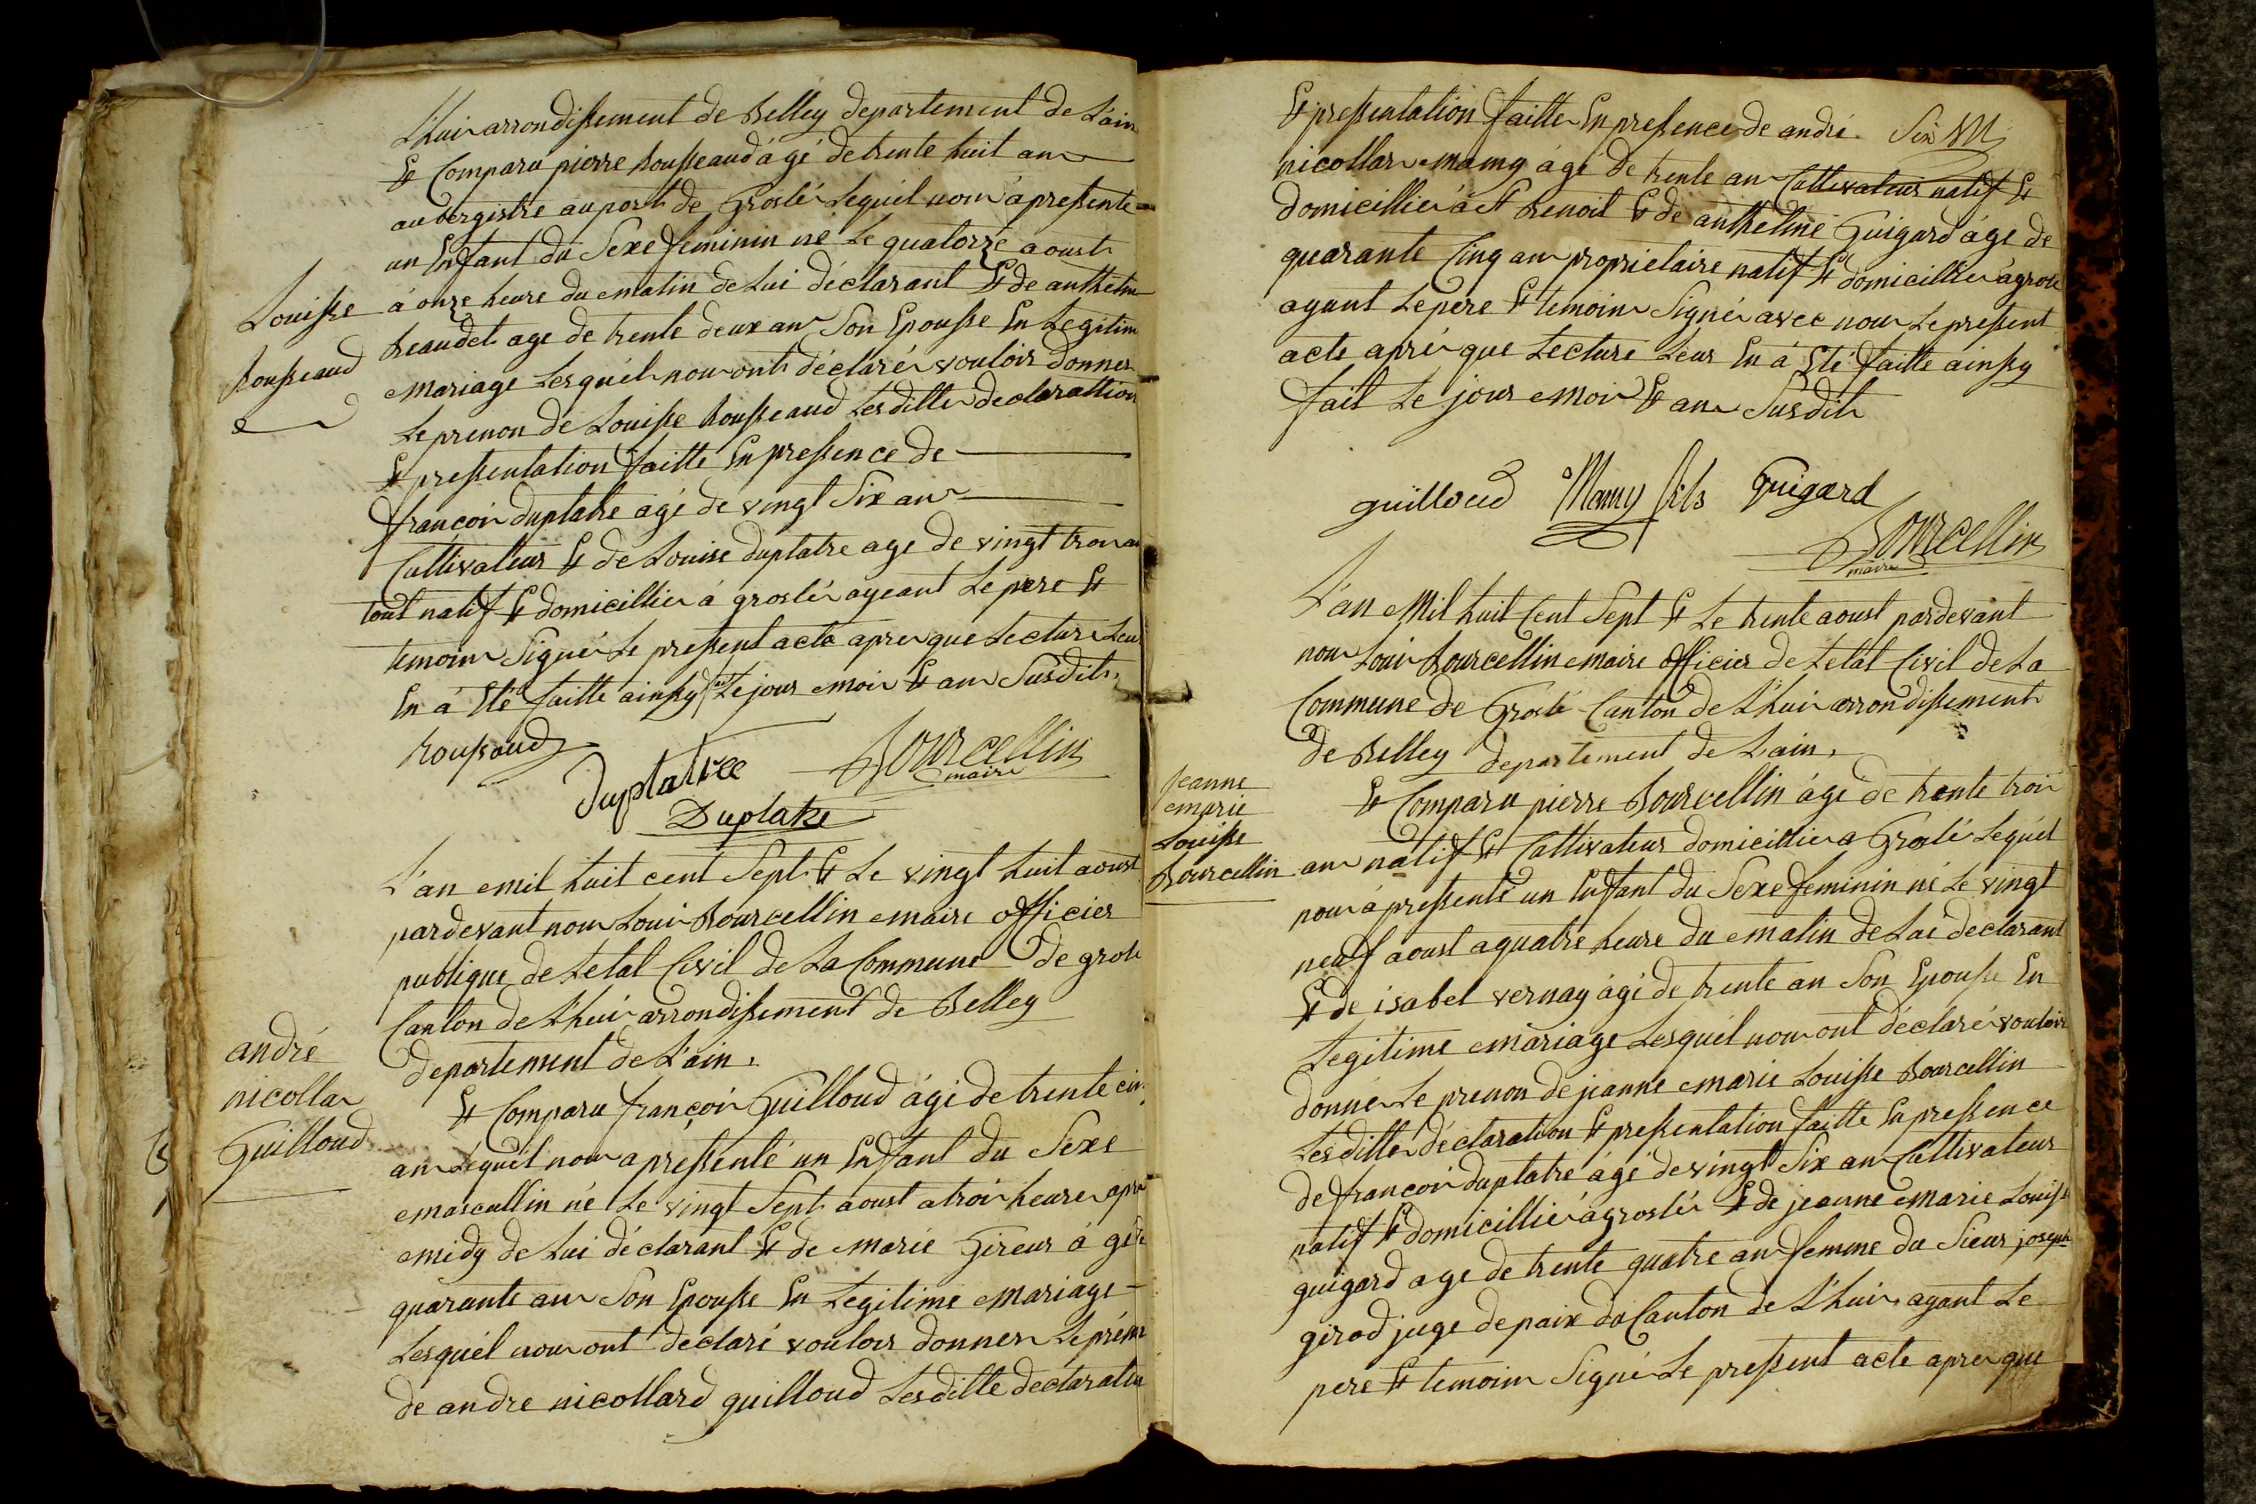 L'hui arrondissement de Belley departement de L'ain
Et Comparu pierre Rousseaud ágé de trente huit an
aubergistre au port de Groslé Lequel nous á pressenté
un Enfant du Sexe feminin né Le quatorze aoust
á onze heure du matin de Lui déclarant Et de anthelme
beaudet age de trente deux an Son Epousse En Legitim
mariage Lesquél nous ont déclaré vouloir donner
Le prenon de Louisse Rousseaud Lesditte declarattion
Et pressentation faitte En pressence de
françois duplatre ágé de vingt Six an
Cultivateur Et de Louise duplatre age de vingt trois an
tout natif Et domicillié á groslé ayeant Le pere Et
temoin Signé Le pressent acte apres que Lecture Leur
En á Eté faitte ainssy fait Le jour mois Et an Susdit,
Louisse
Rousseaud
Roussaud
Duplatree
Bourcellin
maire
Duplatre
L'an mil huit cent Sept Et Le vingt huit aoust
pardevant nous Loui Bourcellin maire officier
publique de Letat Civil de La Commune de grole
Canton de L'hui arrondissement de Belley
departement de L'ain,
Et Comparu françois Guilloud ágé de trente cin
an Lequél nous a pressenté un Enfant du Sexe
mascullin né Le vingt Sept aoust a trois heure apre
midy de Lui déclarant Et de marie Gireur á gé de
quarante an Son Epousse En Legitime mariage
Lesquél nous ont declaré vouloir donner Le prénon
de andre nicollard guilloud Lesditte declaration
andré
nicollas
Guilloud
Et pressentation faitte En pressence de andré
nicollas mamy ágé de trente an Cultivateur natif Et
domicillié á St Benoit Et de anthelme Guigard ágé de
quarante Cinq an propriétaire natif Et domicillié á grole
ayant Le pere Et temoin Signé avec nous Le pressent
acte apré que Lecture Leur En á Eté faitte ainssy
fait Le jour mois Et an Susdit
guilloud Mamy fils Guigard
Bourcellin
maire
L'an Mil huit Cent Sept Et Le trente aoust pardevant
nous Loui Bourcellin maire officier de Letat Civil de La
Commune de Groslé Canton de L'hui arrondissement
de Belley departement de L'ain,
Et Comparu pierre Bourcellin ágé de trente troi
an natif Et Cultivateur domicillié a Groslé Lequél
nous á pressenté un Enfant du Sexe feminin né Le vingt
neuf aoust a quatre heure du matin de Lui declarant
Et de isabel vernay ágé de trente an Son Epousse En
Legitime mariage Lesquél nous ont déclaré vouloir
donné Le prenon de jeanne marie Louisse Bourcellin
Lesditte déclaration Et pressentation faitte En pressence
de françois duplatre ágé de vingt Six an Cultivateur
natif Et domicillié á groslé Et de jeanne marie Louisse
guigard age de trente quatre an femme du Sieur joseph
girod juge de paix du Canton de L'hui, ayant Le
pere Et temoin Signé Le pressent acte apres que
Jeanne
marie
Louisse
Bourcellin